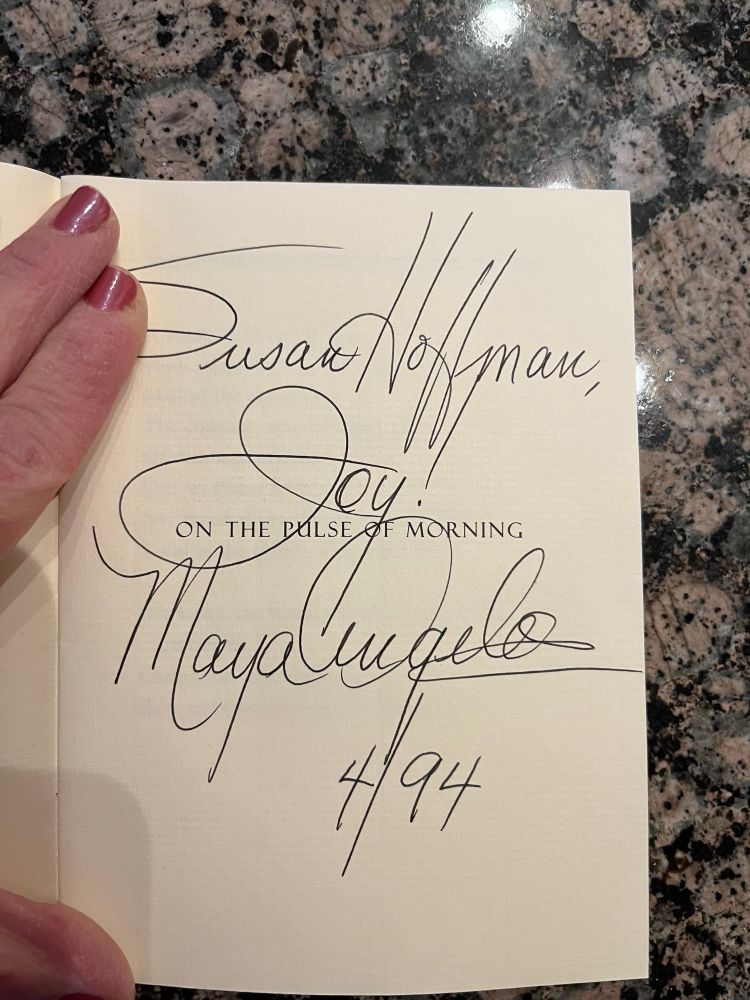 Susan Hoffman,
Joy!
ON THE PULSE OF MORNING
Maya Angelou
4/94